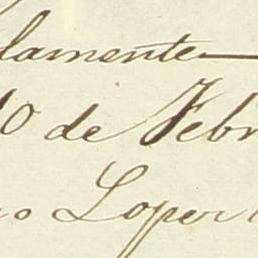 lamente
10 de Febr
o Lopez